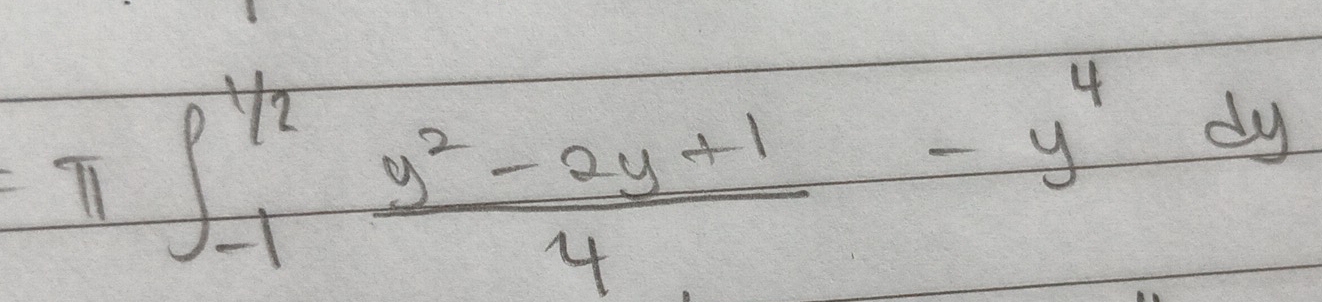 = π ∫_{-1}^{1/2} \frac{y^2 - 2y + 1}{4} - y^4 dy